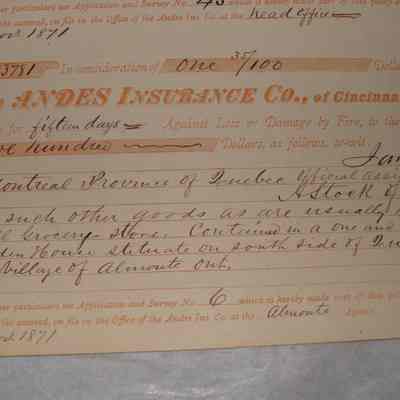 ur particulars see Application and Survey No. 43 which is hereby made part of this policy a
the assured, on file in the Office of the Andes Ins. Co. at the Head Office
1871
3781 In consideration of One 35/100 Dolla
ANDES INSURANCE CO., of Cincinna
for fifteen days Against Loss or Damage by Fire, to the
hundred Dollars, as follows, to-wit:
Montreal Province of Quebec Official Assig
A Stock of
such other goods as are usually
Grocery Store. Contained in a one and
House situate on south side of
Village of Almonte Ont.
particulars see Application and Survey No. 6 which is hereby made part of this pol
the assured, on file in the Office of the Andes Ins. Co. at the Almonte Agency
1871